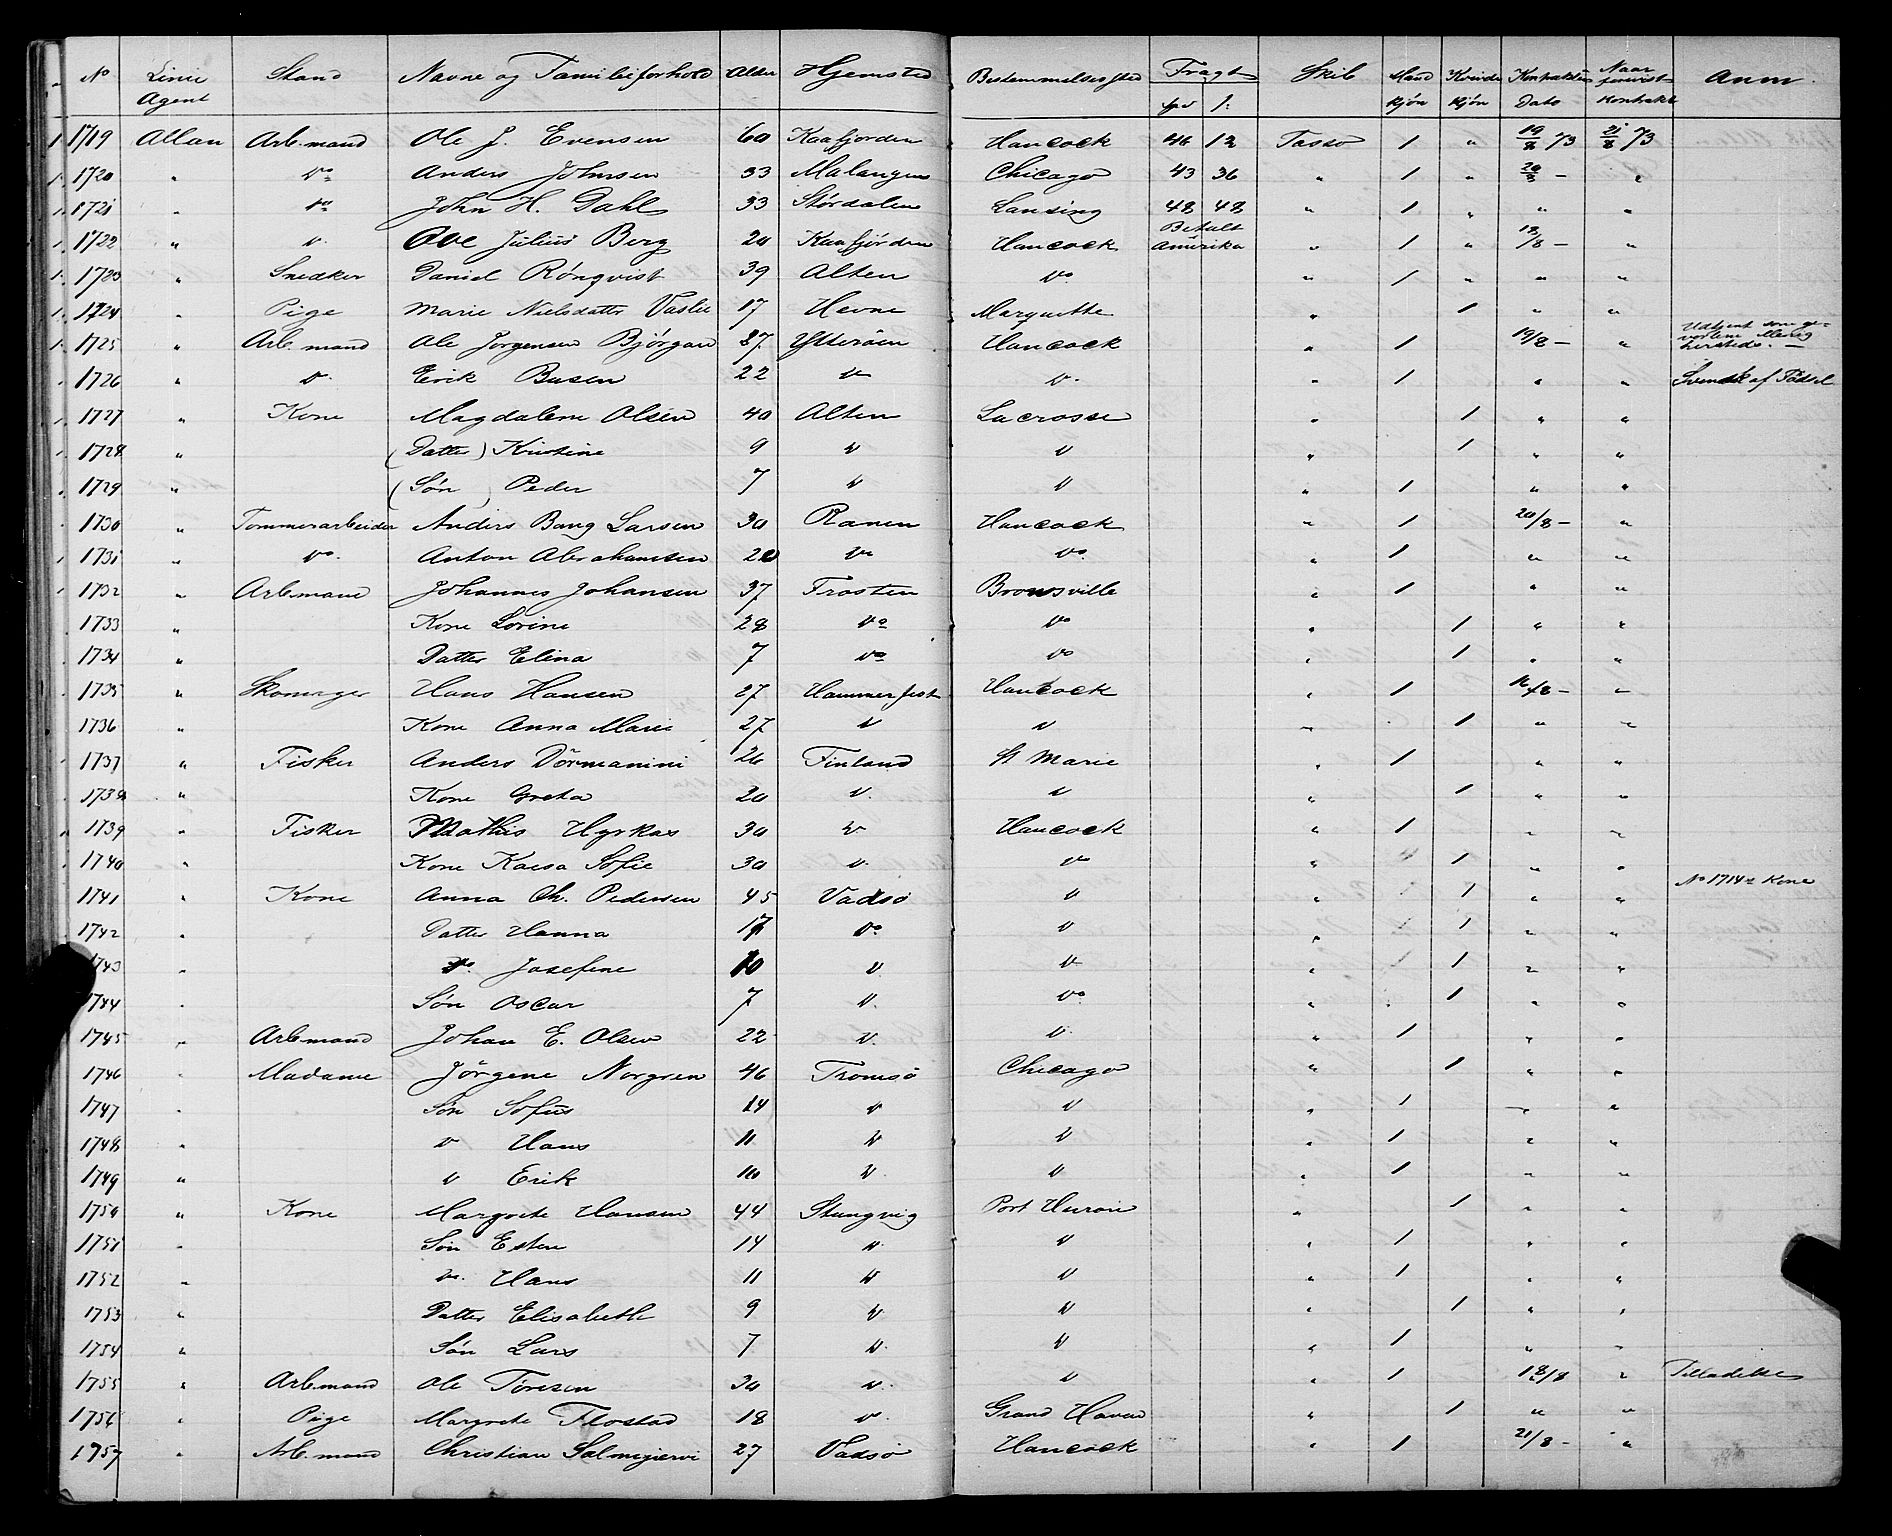 No Linie Agent Stand Navne og Familieforhold Alder Hjemsted Bestemmelsessted Fragt Skib Mand kjön Kvinde kjön Kontraktens Dato Naar Kontrakt Anm
Spd ſ:
1719 Allan Arb. mand Ole J. Evensen 60 Kaafjorden Hancock 46 12 Tasso 1 " 19/8 73 21/8 73
1720 " do Anders Johnsen 33 Malangen Chicago 43 36 " 1 " 20/8 - "
1721 " do John H. Dahl 33 Stördalen Lansing 48 48 " 1 " " "
1722 " d. Ove Julius Berg 20 Kaafjorden Hancock Betalt Amerika " 1 " 18/8 - "
1723 " Snedker Daniel Rönqvist 39 Alten do " 1 " " "
1724 " Pige Marie Nielsdatter Vaslie 17 Hevne Marquette " 1 " "
1725 " Arb. mand Ole Jörgensen Björgan 27 Ytteröen Hancock " 1 19/8 - " Udtjent som
1726 " d. Erik Busen 22 d d. " 1 " " Svensk af Födsel
1727 " Kone Magdalene Olsen 40 Alten Lacrosse " 1 " "
1728 " (Datter) Kristine 9 d d " 1 " "
1729 " (Sön) Peder 7 d d " 1 " "
1730 " Tömmerarbeider Anders Bang Larsen 30 Ranen Hancock " 1 20/8 - "
1731 " do. Anton Abrahamsen 20 do do. " 1 " "
1732 " Arb. mand Johannes Johansen 37 Frosten Brownsville " 1 " "
1733 " Kone Lorine 28 do do " 1 " "
1734 " Datter Elina 7 do do " 1 " "
1735 " Skomager Hans Hansen 27 Hammerfest Hancock " 1 /8 - "
1736 " Kone Anna Marie 27 d d " 1 " "
1737 " Fisker Anders Dörmanini 26 Finland St Marie " 1 " "
1738 " Kone Greta 20 d. d " 1 " "
1739 " Fisker Mathis Hyrkas 30 d Hancock " 1 " "
1740 " Kone Kaisa Sofie 30 d. do " 1 " "
1741 " Kone Anna Ch. Pedersen 45 Vadsö d " 1 " " No 1714s Kone
1742 " Datter Hanna 17 do d " 1 " "
1743 " do. Josefine 10 d d " 1 " "
1744 " Sön Oscar 7 d. do " 1 " "
1745 " Arb. mand Johan E. Olsen 22 d. d " 1 " "
1746 " Madame Jörgene Norgren 46 Tromsö Chicago " 1 " "
1747 " Sön Sofus 14 d d " 1 " "
1748 " d Hans 11 d d " 1 " "
1749 " d Erik 10 d. d " 1 " "
1750 " Kone Margrete Hansen 44 Stangvig Port Huron " 1 " "
1751 " Sön Esten 14 d d " 1 " "
1752 " do. Hans 11 d d " 1 " "
1753 " Datter Elisabeth 9 d d " 1 " "
1754 " Sön Lars 7 d. d " 1 " "
1755 " Arb. mand Ole Töresen 30 d. d " 1 18/8 " Tilladelse
1756 " Pige Margrete Flostad 18 d. Grand Haven " 1 " "
1757 " Arb. mand Christian Salmijervi 27 Vadsö Hancock " 1 21/8 - "